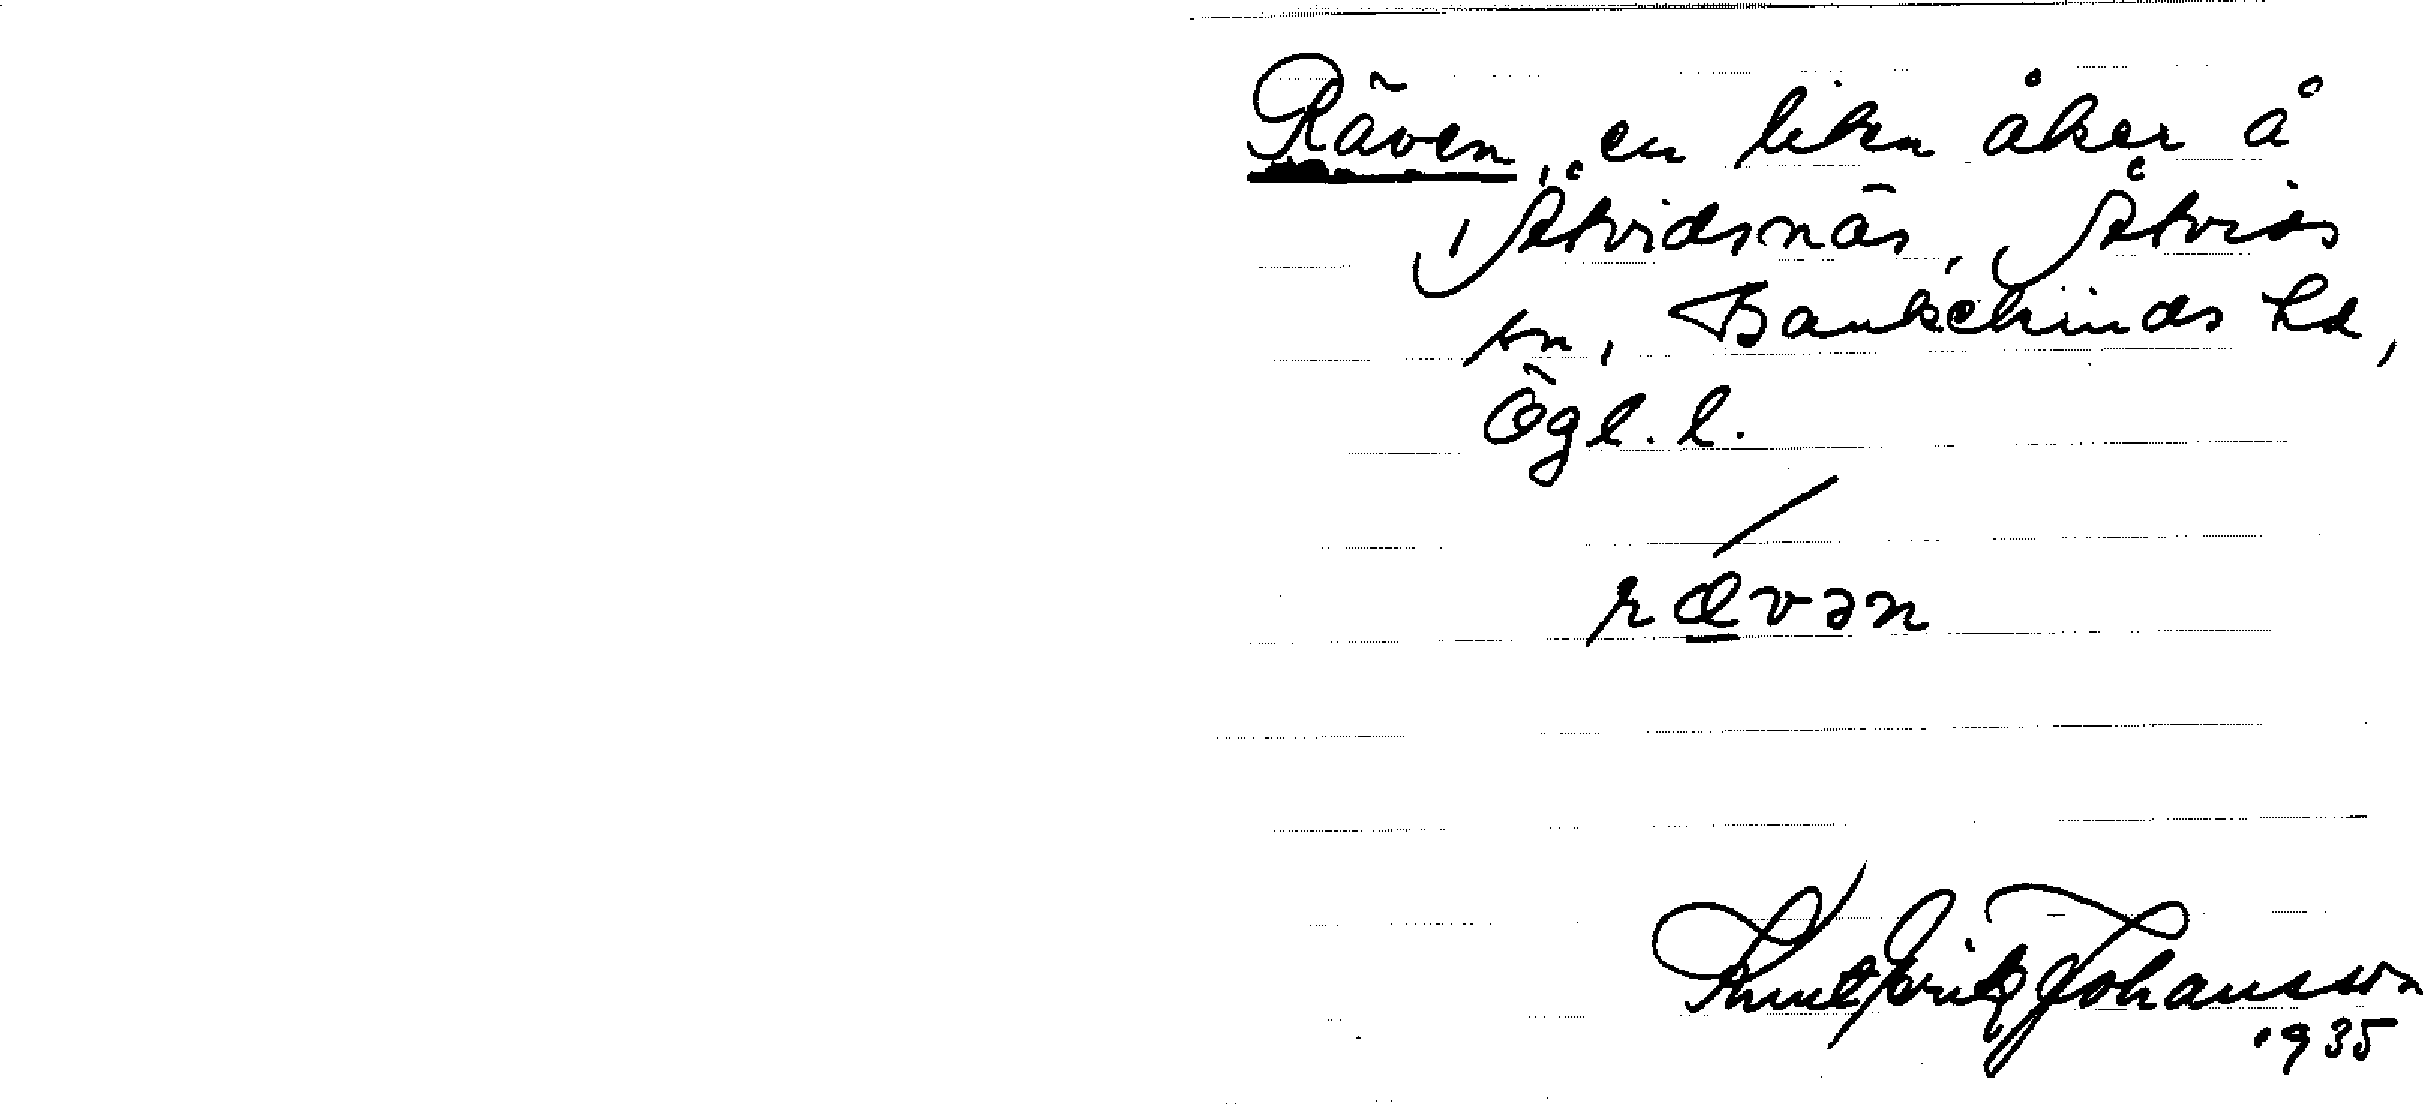 Räven, en liten åker å
Åtvidsnäs, Åtvids
sn, Bankekinds hd,
Ögl. l.
/
rævən
Knut Fritz Johansson
1935